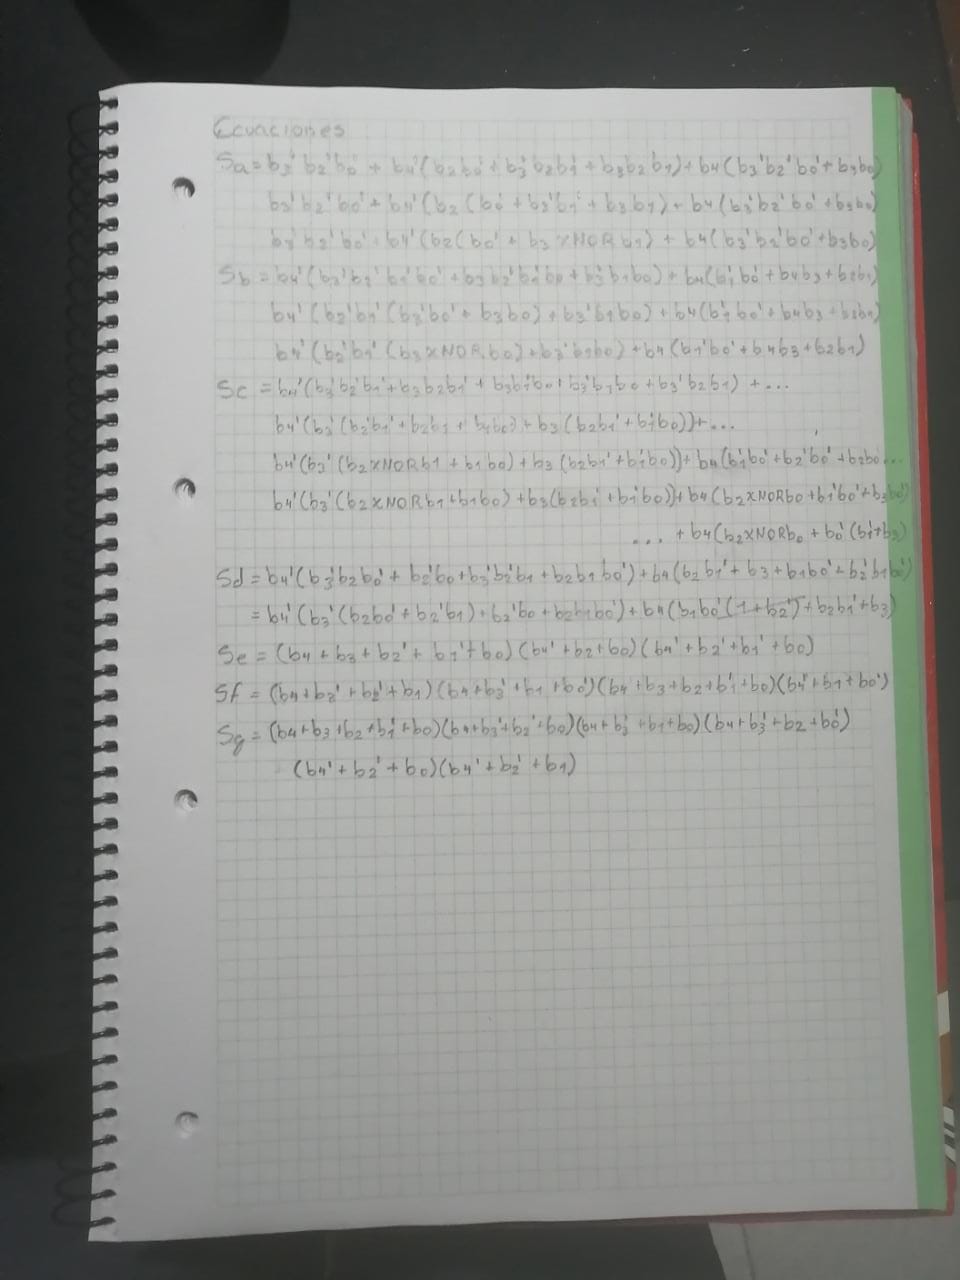 Ecuaciones
Sa = b3' b2' b0' + b4'(b2b0' + b3'b2b1' + b3b2b1) + b4(b3'b2'b0' + b3b0)
b3'b2'b0' + b4'(b2(b0' + b3'b1' + b3b1) + b4(b3'b2'b0' + b3b0)
b3'b2'b0' + b4'(b2(b0' + b3 XNOR b1) + b4(b3'b2'b0' + b3b0)
Sb = b4'(b3'b2'b1'b0' + b3b2'b1'b0 + b3'b1b0) + b4(b1'b0' + b4b3 + b2b1)
b4'(b2'b1'(b3'b0' + b3b0) + b3'b1b0) + b4(b1'b0' + b4b3 + b2b1)
b4'(b2'b1'(b3 XNOR b0) + b3'b1b0) + b4(b1'b0' + b4b3 + b2b1)
Sc = b4'(b3'b2'b1' + b3b2b1' + b3b1'b0 + b3'b1b0 + b3'b2b1) + ...
b4'(b3'(b2'b1' + b2b1 + b1b0) + b3(b2b1' + b1'b0)) + ...
b4'(b3'(b2 XNOR b1 + b1b0) + b3(b2b1' + b1'b0)) + b4(b1'b0' + b2'b0' + b2b0 ...
b4'(b3'(b2 XNOR b1 + b1b0) + b3(b2b1' + b1'b0)) + b4(b2 XNOR b0 + b1'b0' + b3b0')
... + b4(b2 XNOR b0 + b0'(b1' + b3)
Sd = b4'(b3'b2b0' + b2'b0 + b3'b2'b1 + b2b1b0') + b4(b2b1' + b3 + b1b0' + b2'b1b0')
= b4'(b3'(b2b0' + b2'b1) + b2'b0 + b2b1b0') + b4(b1b0'(1+b2') + b2b1' + b3)
Se = (b4 + b3 + b2' + b1' + b0)(b4' + b2 + b0)(b4' + b2' + b1' + b0)
Sf = (b4 + b3' + b2' + b1)(b4 + b3' + b1 + b0')(b4' + b3 + b2 + b1' + b0)(b4' + b1 + b0')
Sg = (b4 + b3 + b2 + b1' + b0)(b4 + b3' + b2' + b0)(b4 + b3' + b1 + b0)(b4 + b3' + b2 + b0')
(b4' + b2' + b0)(b4' + b2' + b1)